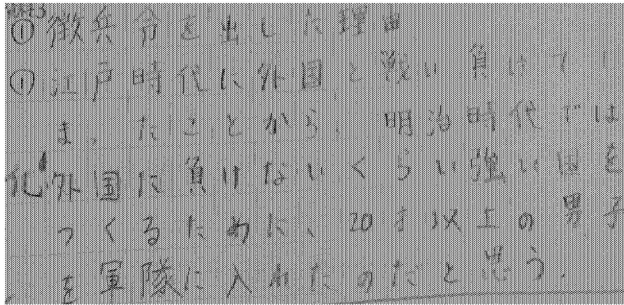 ①徴兵令を出した理由
①江戸時代に外国と戦い負けてし
まったことから、明治時代では
外国に負けないくらい強い国を
つくるために、20才以上の男子
を軍隊に入れたのだと思う。